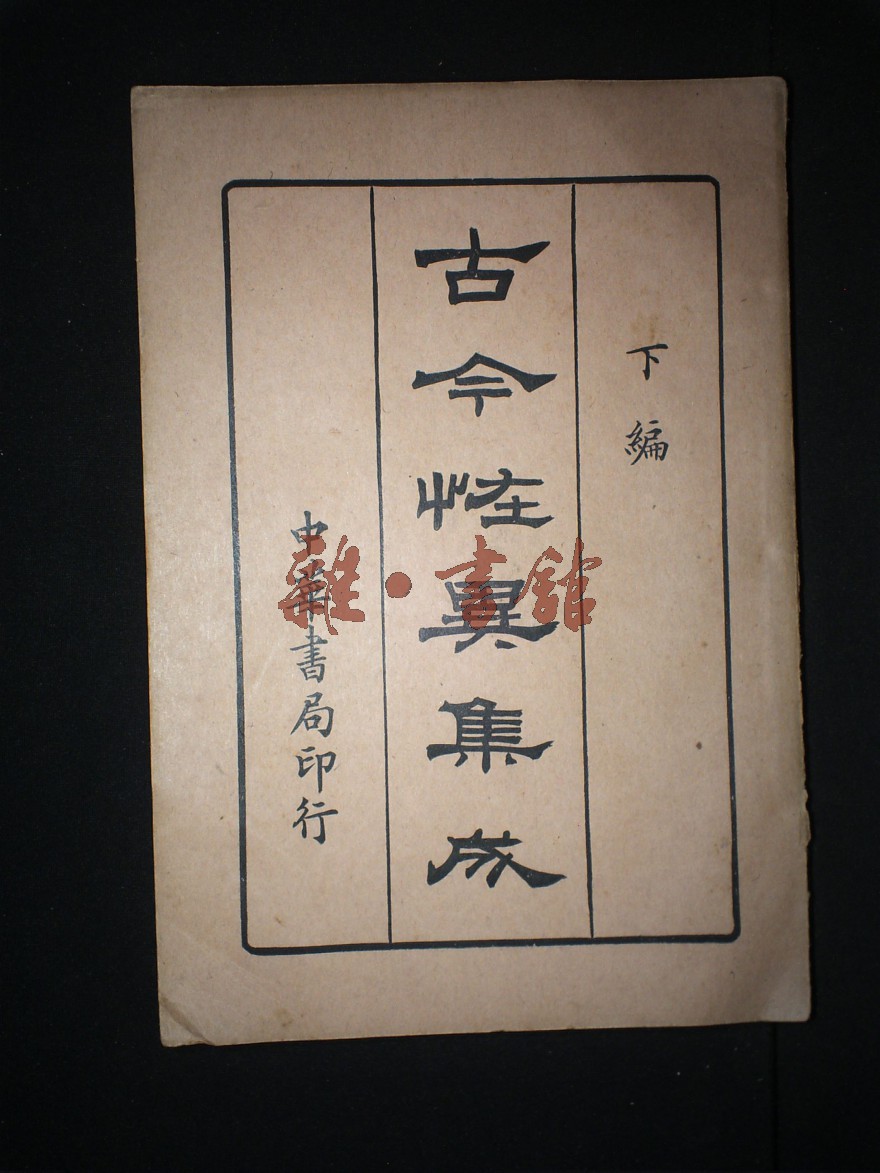 下編
古今恠異集成
中華書局印行
雜·書館